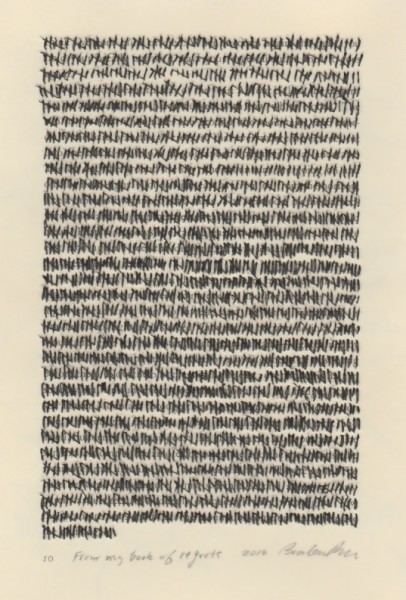 10 From my book of regrets 2010